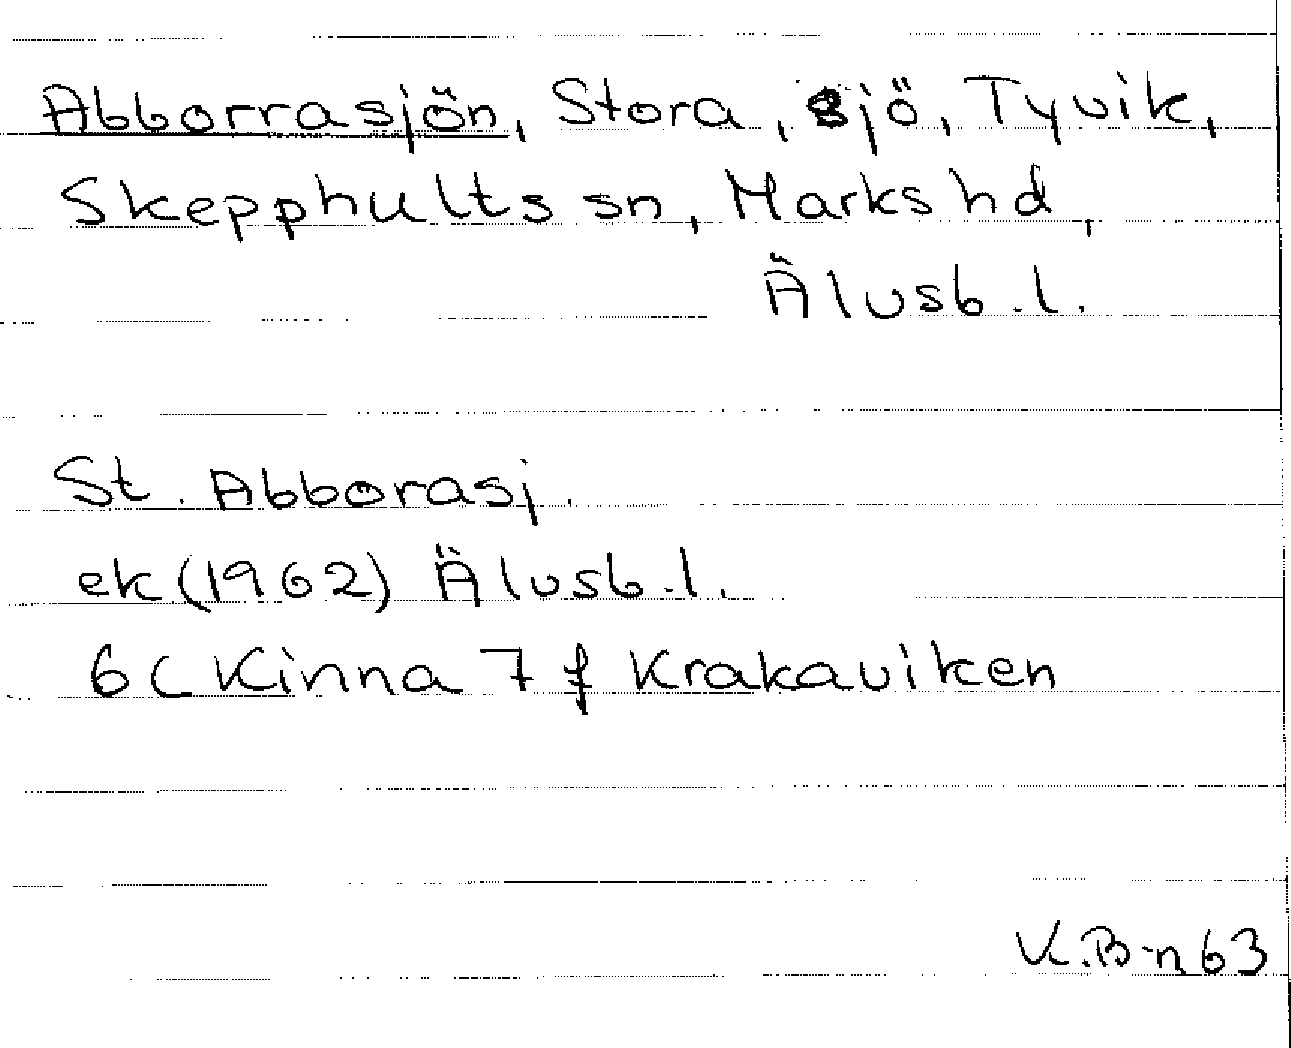 Abborrasjön, Stora, sjö, Tyvik,
Skepphults sn, Marks hd,
Älvsb. l.
St. Abborasj.
ek (1962) Älvsb. l.
6C Kinna 7 f Krakaviken
K.B-n 63